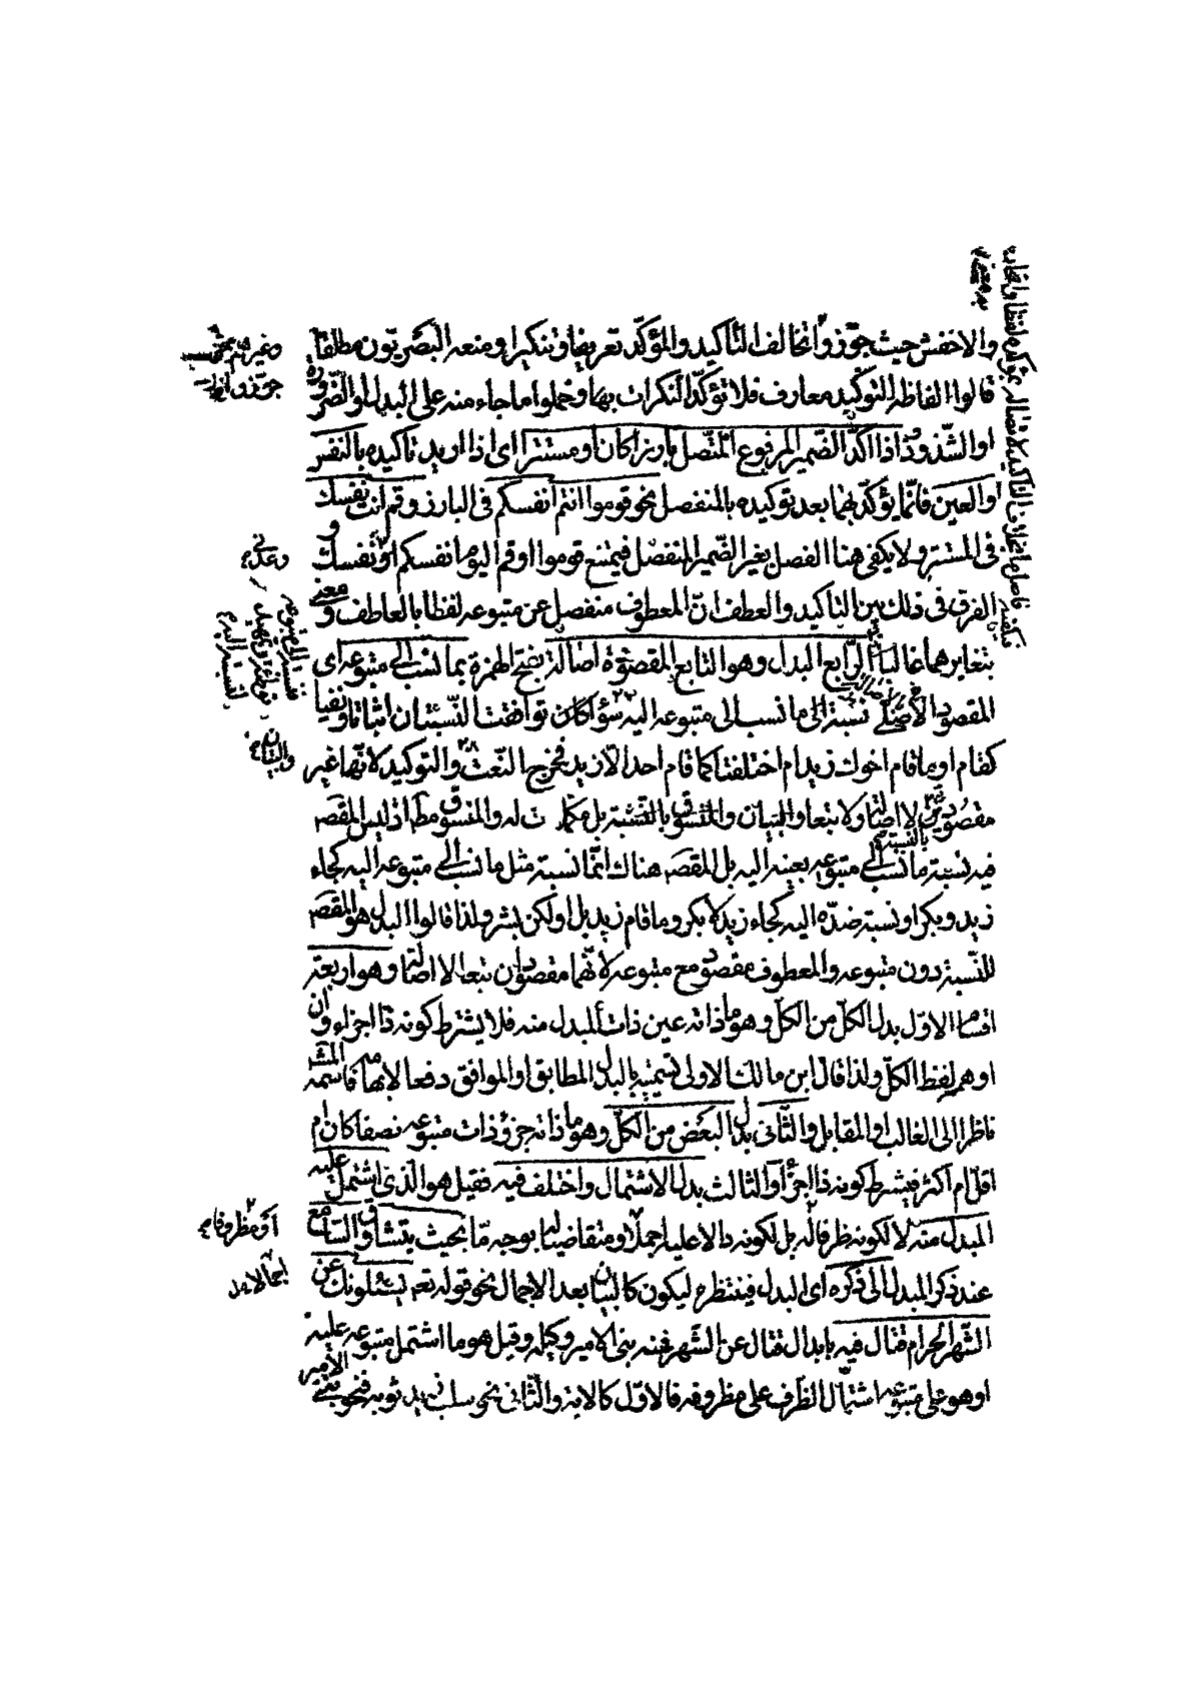 والاخفش حيث جوّزوا تخالف التأكيد والمؤكّد تعريفا وتنكيرا ومنعه البصريّون مطلقا
قالوا الفاظ التوكيد معارف فلا تؤكّد النكرات بها وحملوا ما جاء منه على البدل او الضّرورة
او الشّذوذ اذا اكّد الضّمير المرفوع المتّصل بارزا كان او مستترا اى اذا اريد تاكيده بالنفس
او العين فانّما يؤكّد بهما بعد توكيده بالمنفصل نحو قوموا انتم انفسكم فى البارز وقم انت نفسك
فى المستتر ولا يكفى هنا الفصل بغير الضّمير المنفصل فيمتنع قوموا اوقم اليوم انفسكم او نفسك و
الفرق فى ذلك بين التاكيد والعطف انّ المعطوف منفصل عن متبوعه لفظا بالعاطف و معنى
بتغايرهما غالبا الرّابع البدل وهو التابع المقصود اصالة بفتح الهمزة بما نسب الى متبوعه اى
المقصود الاصلى نسبة الى ما نسب الى متبوعه اليه سواء كان توافقت النّسبتان اثباتا ونفيا
كقام او ما قام اخوك زيد ام اختلفتا كما قام احد الّا زيد فخرج النّعت والتوكيد لانّها غير
مقصود لا اصالة ولا تبعا والبيان والمنسوق بالنّسبة بل مكمّلات له والمنسوق مط اذ ليس المقصد
فيه نسبة ما نسب الى متبوعه بعينه اليه بل المقصد هناك انّما نسبة مثل ما نسب الى متبوعه اليه كجاء
زيد وبكر او نسبة ضدّه اليه كجاء زيد لا بكر وما قام زيد بل او لكن بشر ولذا قالوا البدل هو المقصد
للنّسبة دون متبوعه والمعطوف مقصود مع متبوعه لانّهما مقصودان تبعا لا اصالة وهو اربعة
اقسام الاوّل بدل الكلّ من الكلّ وهو ما ذاته عين ذات المبدل منه فلا يشترط كونه ذا اجزاء وان
اوهم لفظ الكلّ ولذا قال ابن مالك الاولى تسميته بالبدل المطابق او الموافق دفعا لايهام قاسمه المشر
ناظرا الى الغالب او المقابل والثّانى بدل البعض من الكلّ وهو ما ذاته جزؤ ذات متبوعه نصفا كان ام
اقلّ ام اكثر فيشرط كونه ذا اجزاء والثالث بدل الاشتمال واختلف فيه فقيل هو الّذى اشتمل عليه
المبدل منه لا لكونه ظرفا له بل لكونه دالا عليه اجمالا ومتقاضيا له بوجه مّا بحيث يتشوق السّامع
عند ذكر المبدل الى ذكره اى البدل فينتظره ليكون كالبيان بعد الاجمال نحو قوله تعم يسئلونك عن
الشّهر الحرام قتال فيه بابدال قتال عن الشّهر بنى الامير وكيله وقيل هو ما اشتمل متبوعه عليه
او هو على متبوعه اشتمال الظّرف على مظروفه فالاوّل كالاية والثّانى نحو سلب زيد ثوبه فنحو بنى الامير